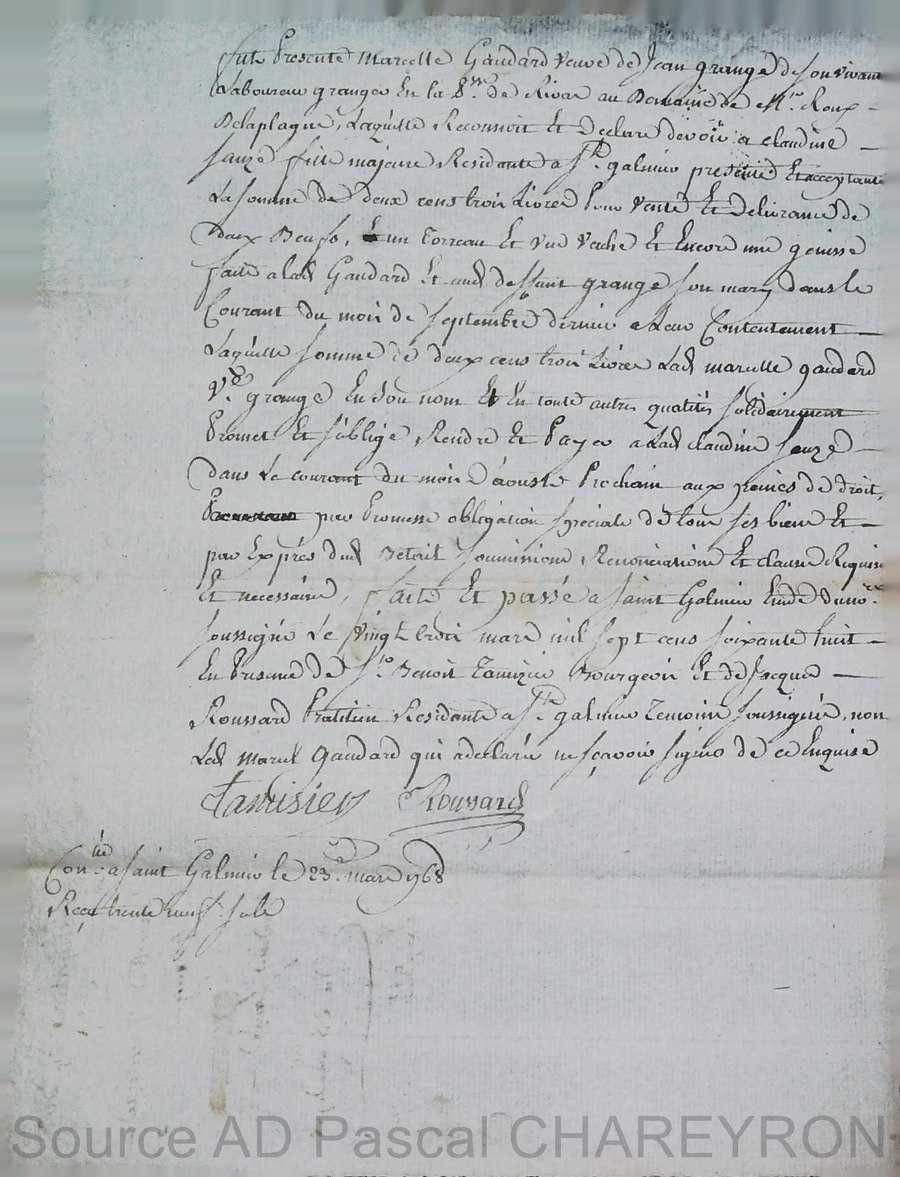 fut Presente Marcelle Gaudard veuve de Jean grange de son vivant
Laboureur granger En la P.sse de Rivas au Domaine de Mr. Roux
Delaplagne, Laquelle Reconnoit Et Declare devoir a claudine
fille majeure Residante a St. galmier presente Et acceptante
La somme de deux cens trois Livres Pour vente Et Delivrance de
deux Beufs, un Torreau Et une vache Et Encore une genisse
faite a lad. Gaudard Et aud. deffunt grange son mary dans le
Courant du mois de septembre dernier a Leur Contentement
Laquelle somme de deux cens trois Livres Lad. marcelle gaudard
Ve. grange En son nom Et En toute autres qualités solidairement
Promet Et s'oblige Rendre Et Payer a Lad. claudine
dans Le courant du mois d'aouste Prochain aux peines de droit,
par Promesse obligation speciale de tous ses biens Et
par Exprés dud. Betail soumissions Renonciations Et clauses Requises
Et necessaire, faite Et passé a saint Galmier Etude du no.re
soussigné Le vingt trois mars mil sept cens soixante huit
En Presence de Sr. Benoit Tamizier Bourgeois Et de Jacque
Roussard Praticien Residants a St. galmier Temoins soussignés, non
Lad. Marcel Gaudard qui a declarée ne sçavoir signer de ce Enquise
Tamisier Roussard
Con.lle a saint Galmier le 23e. mars 1768
Reçu trente neuf sols
Source AD Pascal CHAREYRON